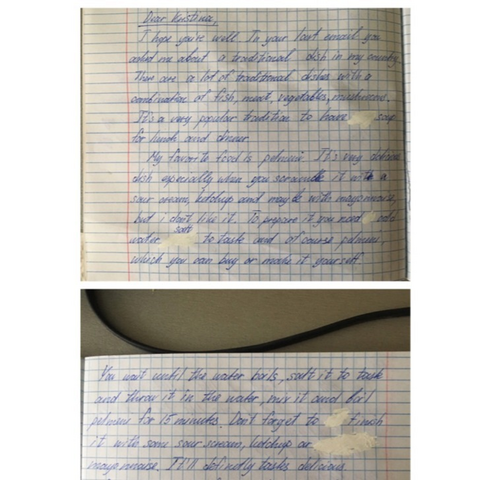 Dear Kristina,
I hope you're well. In your last email you
asked me about a traditional dish in my country.
There are a lot of traditional dishes with a
combination of fish, meat, vegetables, mushrooms.
It's a very popular tradition to have soup
for lunch and dinner.
My favorite food is pelmeni. It's very delicious
dish especially when you it with a
sour cream, ketchup and maybe with mayonnaise,
but i don't like it. To prepare it you need add
water, salt to taste and of course pelmeni,
which you can buy or make it yourself.
You wait until the water boils, salt it to taste
and throw it in the water, mix it and boil
pelmeni for 15 minutes. Don't forget to finish
it with some sour scream, ketchup or
mayonnaise. It'll definitly taste delicious